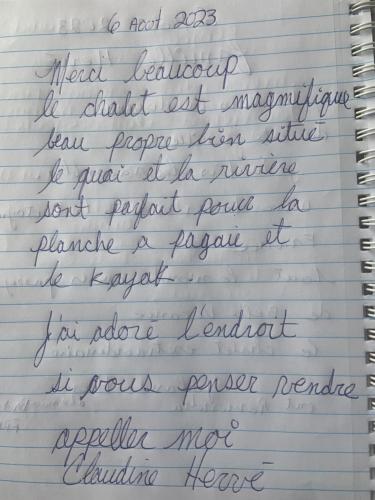 6 Août 2023
Merci beaucoup
le chalet est magmifique
beau propre bien situé
le quai et la rivière
sont parfait pour la
planche a pagaie et
le kayak.
J'ai adoré l'endroit
si vous penser vendre
appeller moi
Claudine Hervé